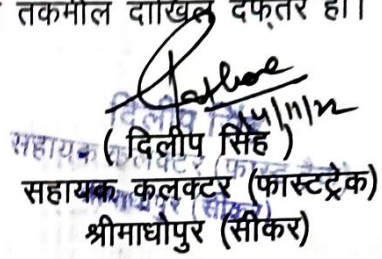 तकमील दाखिल दफ़्तर हो।
14/11/22
( दिलीप सिंह )
सहायक कलक्टर (फास्टट्रेक)
श्रीमाधोपुर (सीकर)